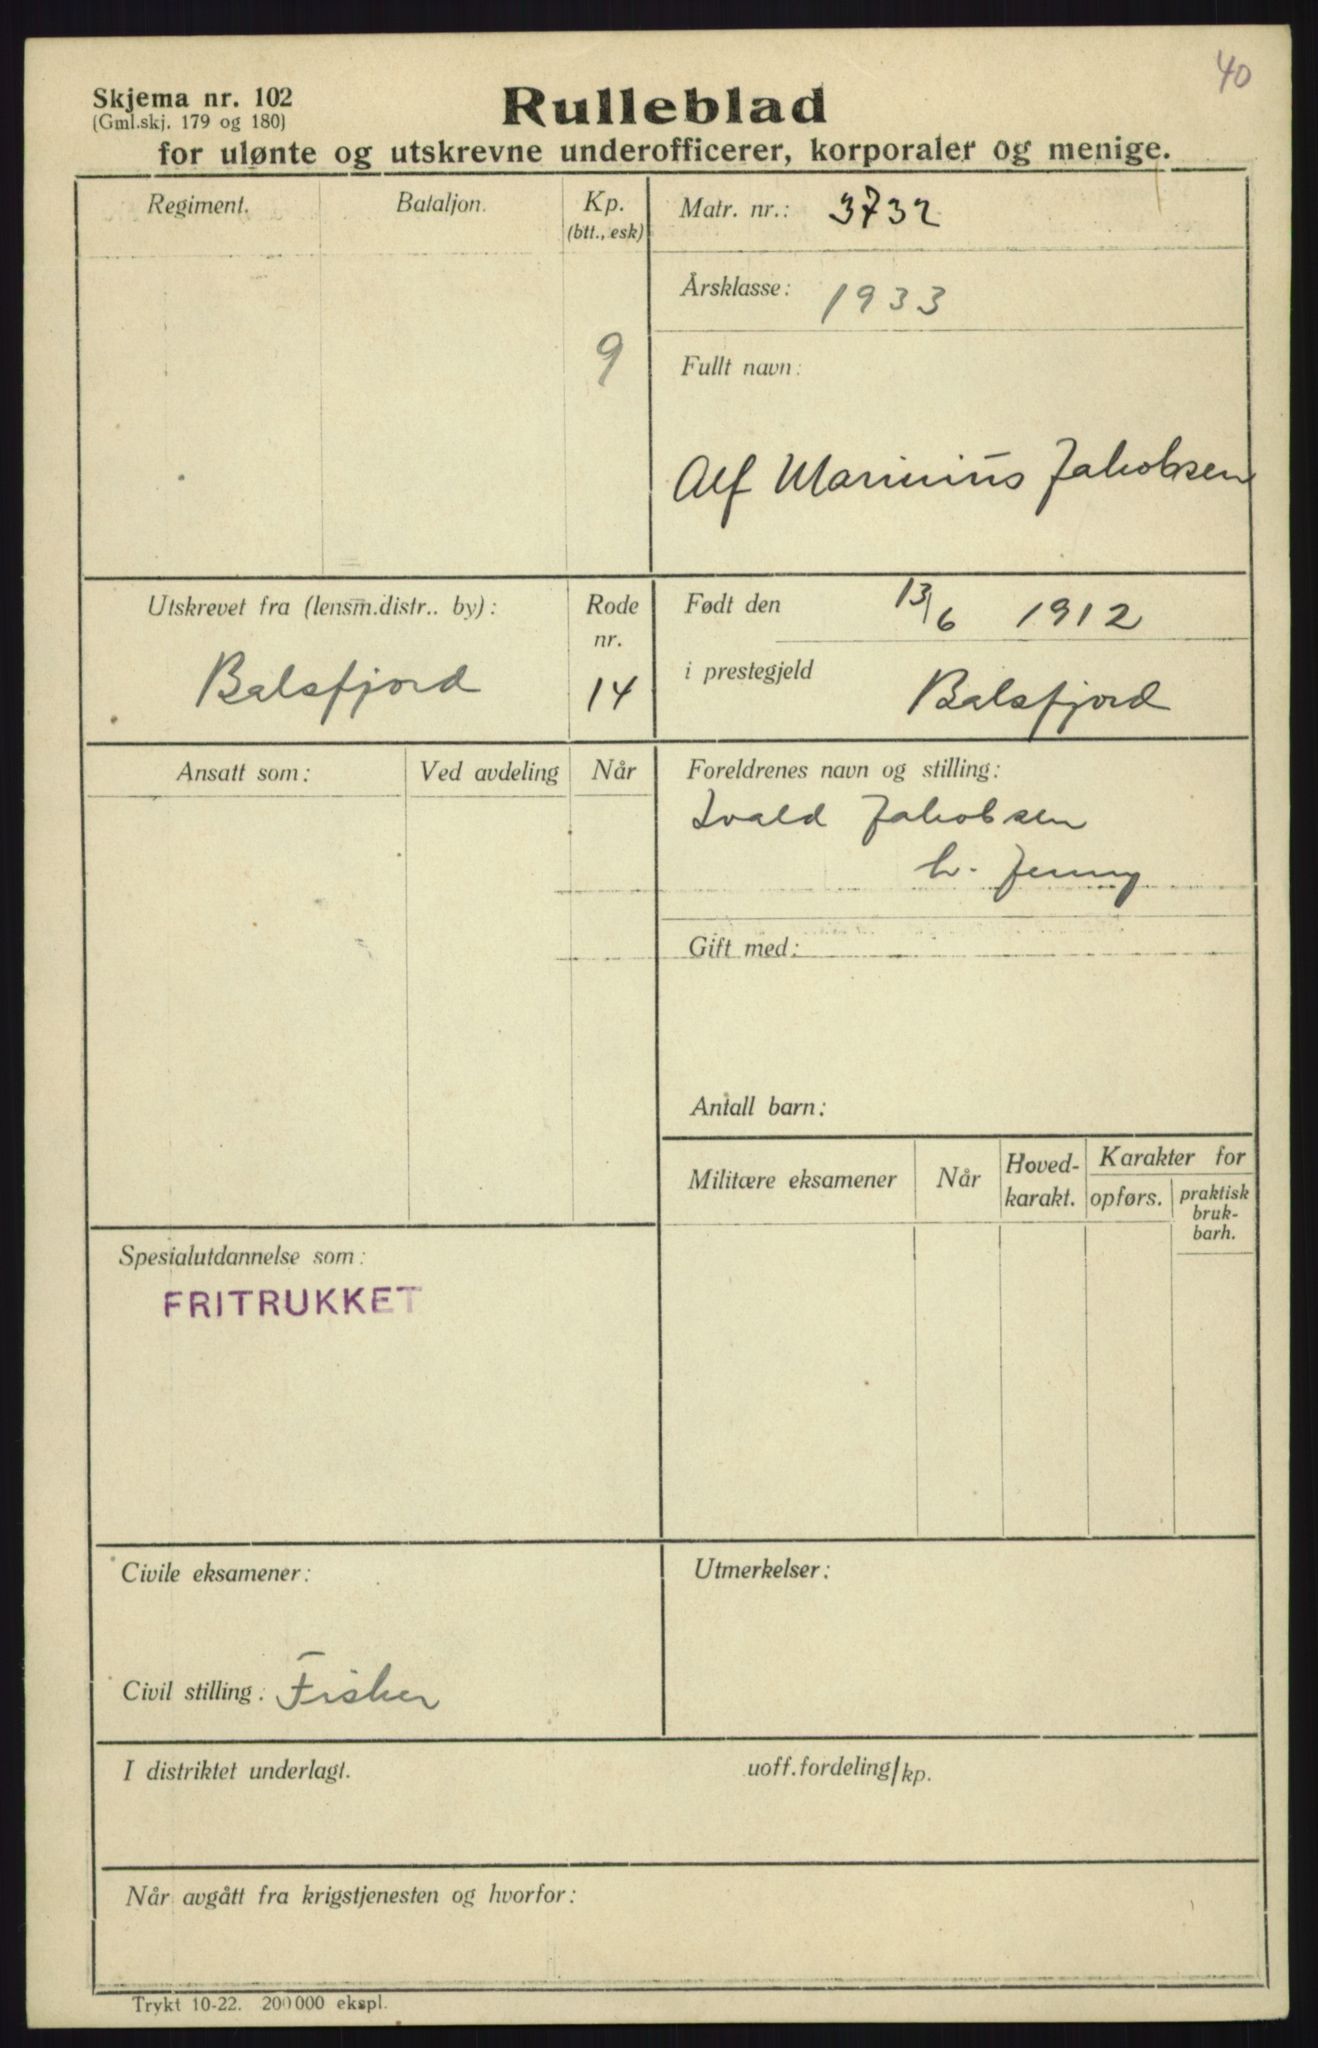 40
Skjema nr. 102
(Gml.skj. 179 og 180)
Rulleblad
for ulønte og utskrevne underofficerer, korporaler og menige.
Regiment.
Bataljon.
Kp.
(btt., esk)
9
Matr. nr.: 3732
Årsklasse: 1933
Fullt navn:
Alf Marinius Jakobsen
Utskrevet fra (lensm.distr.. by):
Balsfjord
Rode
nr.
14
Født den 13/6 1912
i prestegjeld Balsfjord
Ansatt som:
Ved avdeling
Når
Foreldrenes navn og stilling:
Ivald Jakobsen
h. Jenny
Gift med:
Antall barn:
Militære eksamener
Når
Hoved-
karakt.
Karakter for
opførs.
praktisk
bruk-
barh.
Spesialutdannelse som:
FRITRUKKET
Civile eksamener:
Civil stilling: Fisker
Utmerkelser:
I distriktet underlagt.
uoff.fordeling/kp.
Når avgått fra krigstjenesten og hvorfor:
Trykt 10-22. 200000 ekspl.